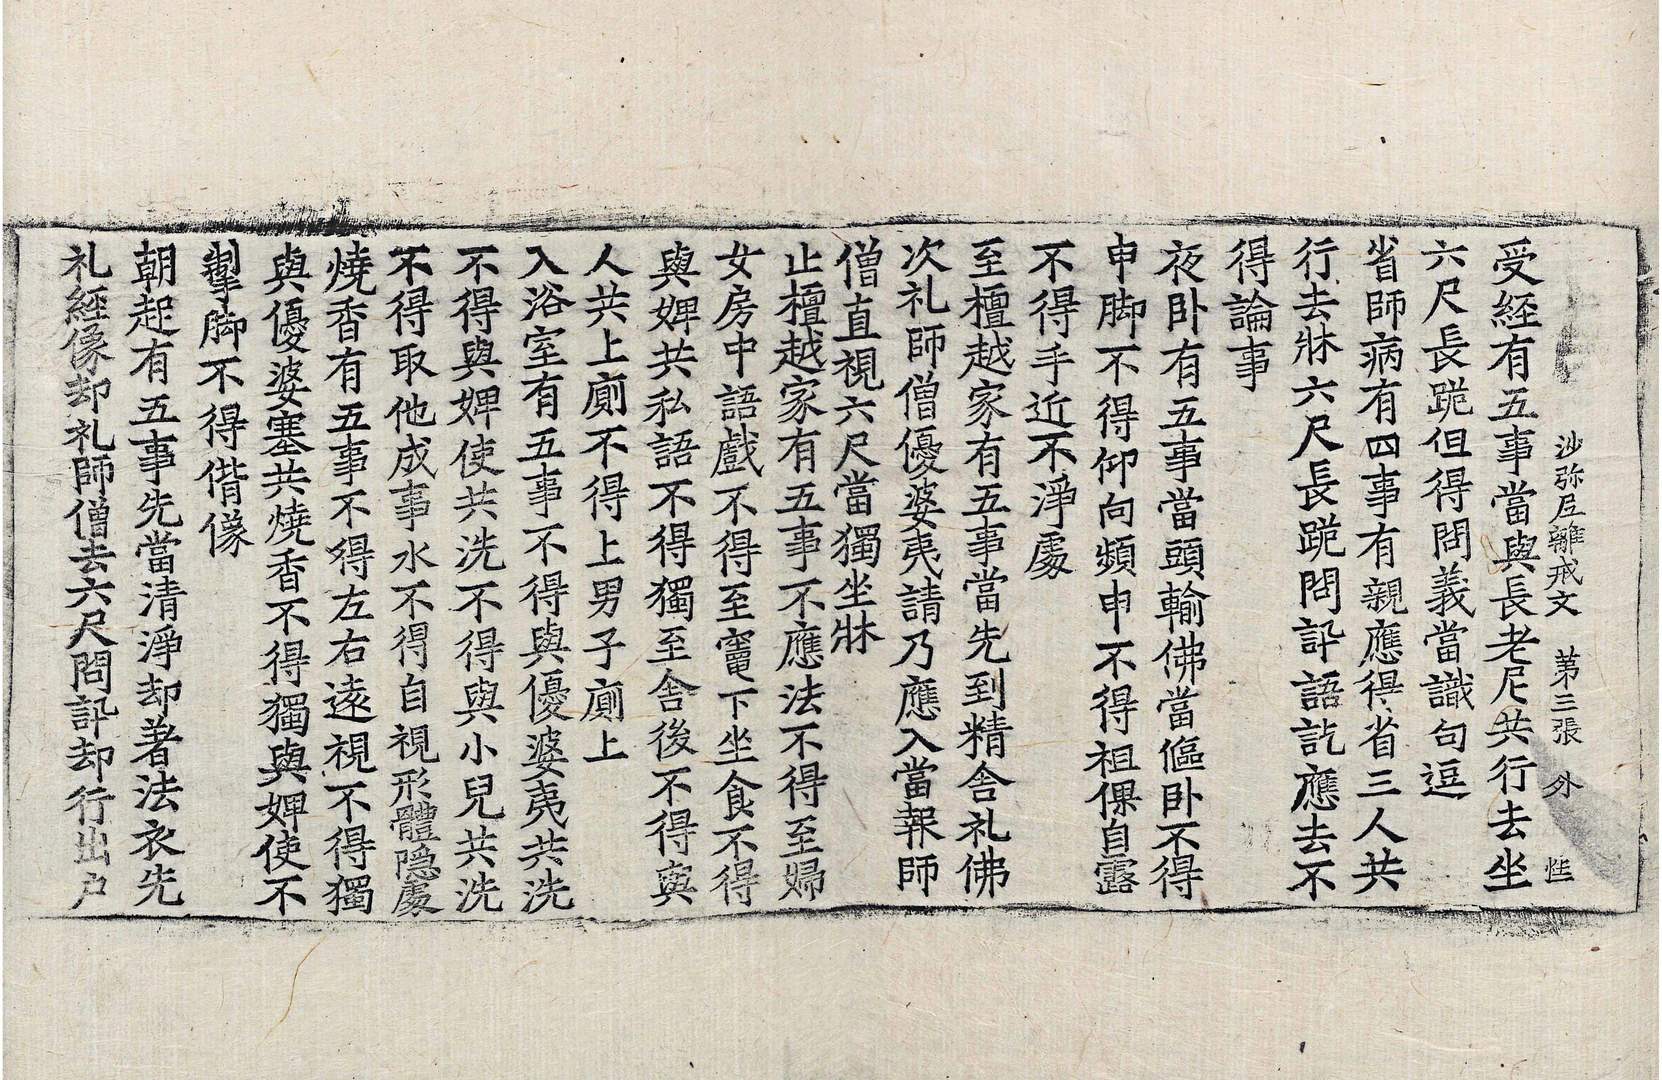 沙弥尼離戒文 第三張 外
受経有五事當與長老尼共行去坐
六尺長跪但得問義當識句逗
省師病有四事有親應得省三人共
行去牀六尺長跪問訊語訖應去不
得論事
夜卧有五事當頭輸佛當傴卧不得
申脚不得仰向頻申不得袒倮自露
不得手近不淨處
至檀越家有五事當先到精舎礼佛
次礼師僧優婆夷請乃應入當報師
僧直視六尺當獨坐牀
止檀越家有五事不應法不得至婦
女房中語戲不得至竃下坐食不得
與婢共私語不得獨至舎後不得與
人共上廁不得上男子廁上
入浴室有五事不得與優婆夷共洗
不得與婢使共洗不得與小兒共洗
不得取他成事水不得自視形體隱處
燒香有五事不得左右遠視不得獨
與優婆塞共燒香不得獨與婢使不
掣脚不得偝像
朝起有五事先當清淨却著法衣先
礼経像却礼師僧去六尺問訊却行出户